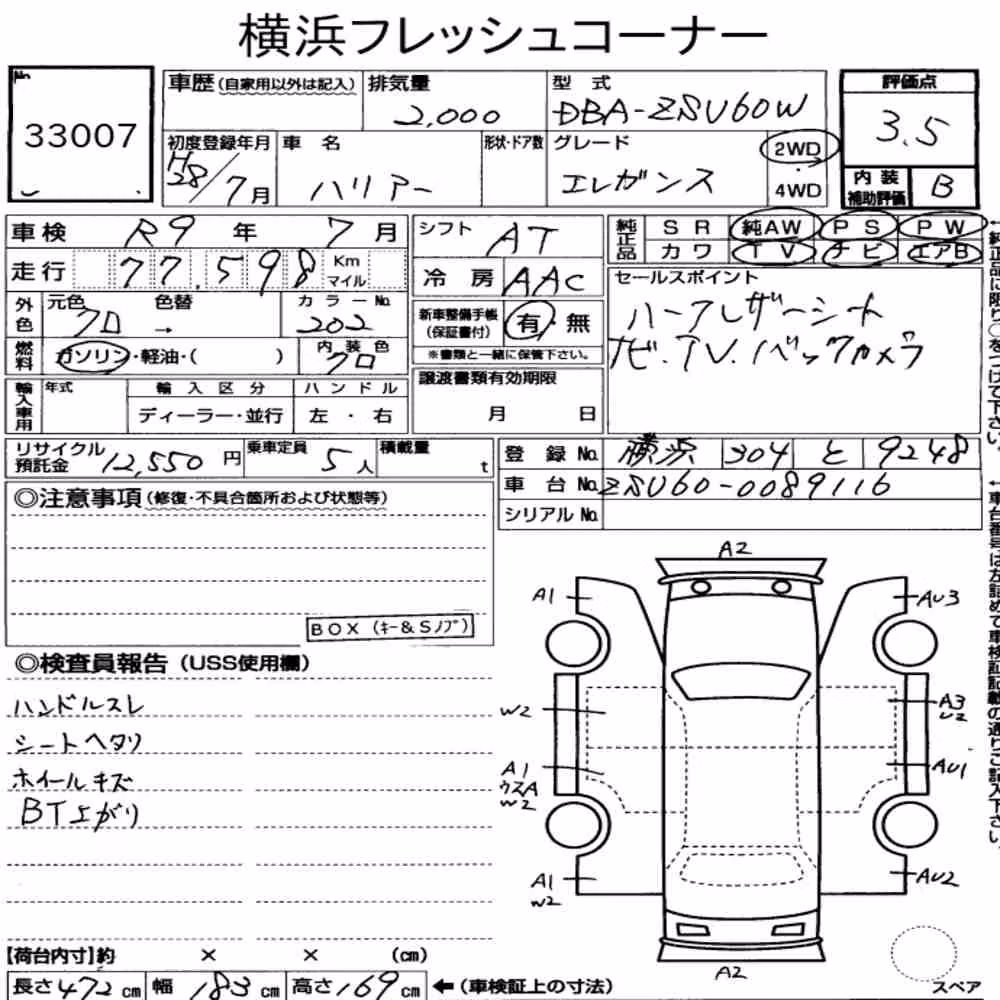 横浜フレッシュコーナー
No. 33007
車歴(自家用以外は記入) 排気量 2,000 型式 DBA-ZSU60W 評価点 3.5
初度登録年月 H28/7月 車名 ハリアー 形状・ドア数 グレード エレガンス 2WD 4WD 内装補助評価 B
車検 R9年 7月 シフト AT 純正品 SR 純AW PS PW
カワ TV ナビ エアB
走行 77,598 Km マイル 冷房 AAC
セールスポイント
ハーフレザーシート
ナビ.TV.バックカメラ
外色 元色 クロ 色替 → カラーNo. 202 新車整備手帳(保証書付) 有・無
※書類と一緒に保管下さい。
燃料 ガソリン・軽油・( ) 内装色 クロ
譲渡書類有効期限 月 日
輸入車用 年式 輸入区分 ハンドル
ディーラー・並行 左・右
リサイクル預託金 12,550円 乗車定員 5人 積載量 t
登録No. 横浜 304 と 9248
車台No. ZSU60-0089116
シリアルNo.
◎注意事項(修復・不具合箇所および状態等)
BOX (キー&Sノブ)
◎検査員報告(USS使用欄)
ハンドルスレ
シートヘタリ
ホイールキズ
BT上がり
A2
A1
AU3
W2
A3
U2
A1
ウスA
W2
AU1
A1
W2
AU2
A2
スペア
【荷台内寸】約 × × (cm)
長さ472cm 幅183cm 高さ169cm ←(車検証上の寸法)
←純正品に限り○をつけて下さい。
←車台番号は左詰めで車検証記載の通りご記入下さい。